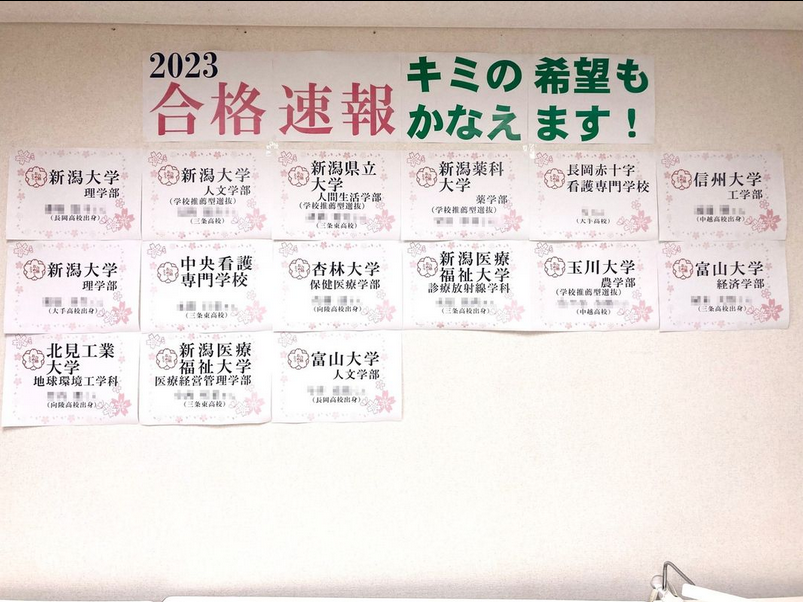 2023
合格速報
キミの希望も
かなえます！
新潟大学
理学部
(長岡高校出身)
新潟大学
人文学部
(学校推薦型選抜)
(三条高校)
新潟県立
大学
人間生活学部
(学校推薦型選抜)
(三条高校)
新潟薬科
大学
薬学部
(学校推薦型選抜)
(三条東高校)
長岡赤十字
看護専門学校
(大手高校)
信州大学
工学部
(中越高校出身)
新潟大学
理学部
(大手高校出身)
中央看護
専門学校
(三条東高校)
杏林大学
保健医療学部
(向陵高校出身)
新潟医療
福祉大学
診療放射線学科
(三条高校出身)
玉川大学
農学部
(学校推薦型選抜)
(中越高校)
富山大学
経済学部
(三条高校出身)
北見工業
大学
地球環境工学科
(向陵高校出身)
新潟医療
福祉大学
医療経営管理学部
(三条東高校)
富山大学
人文学部
(長岡高校出身)